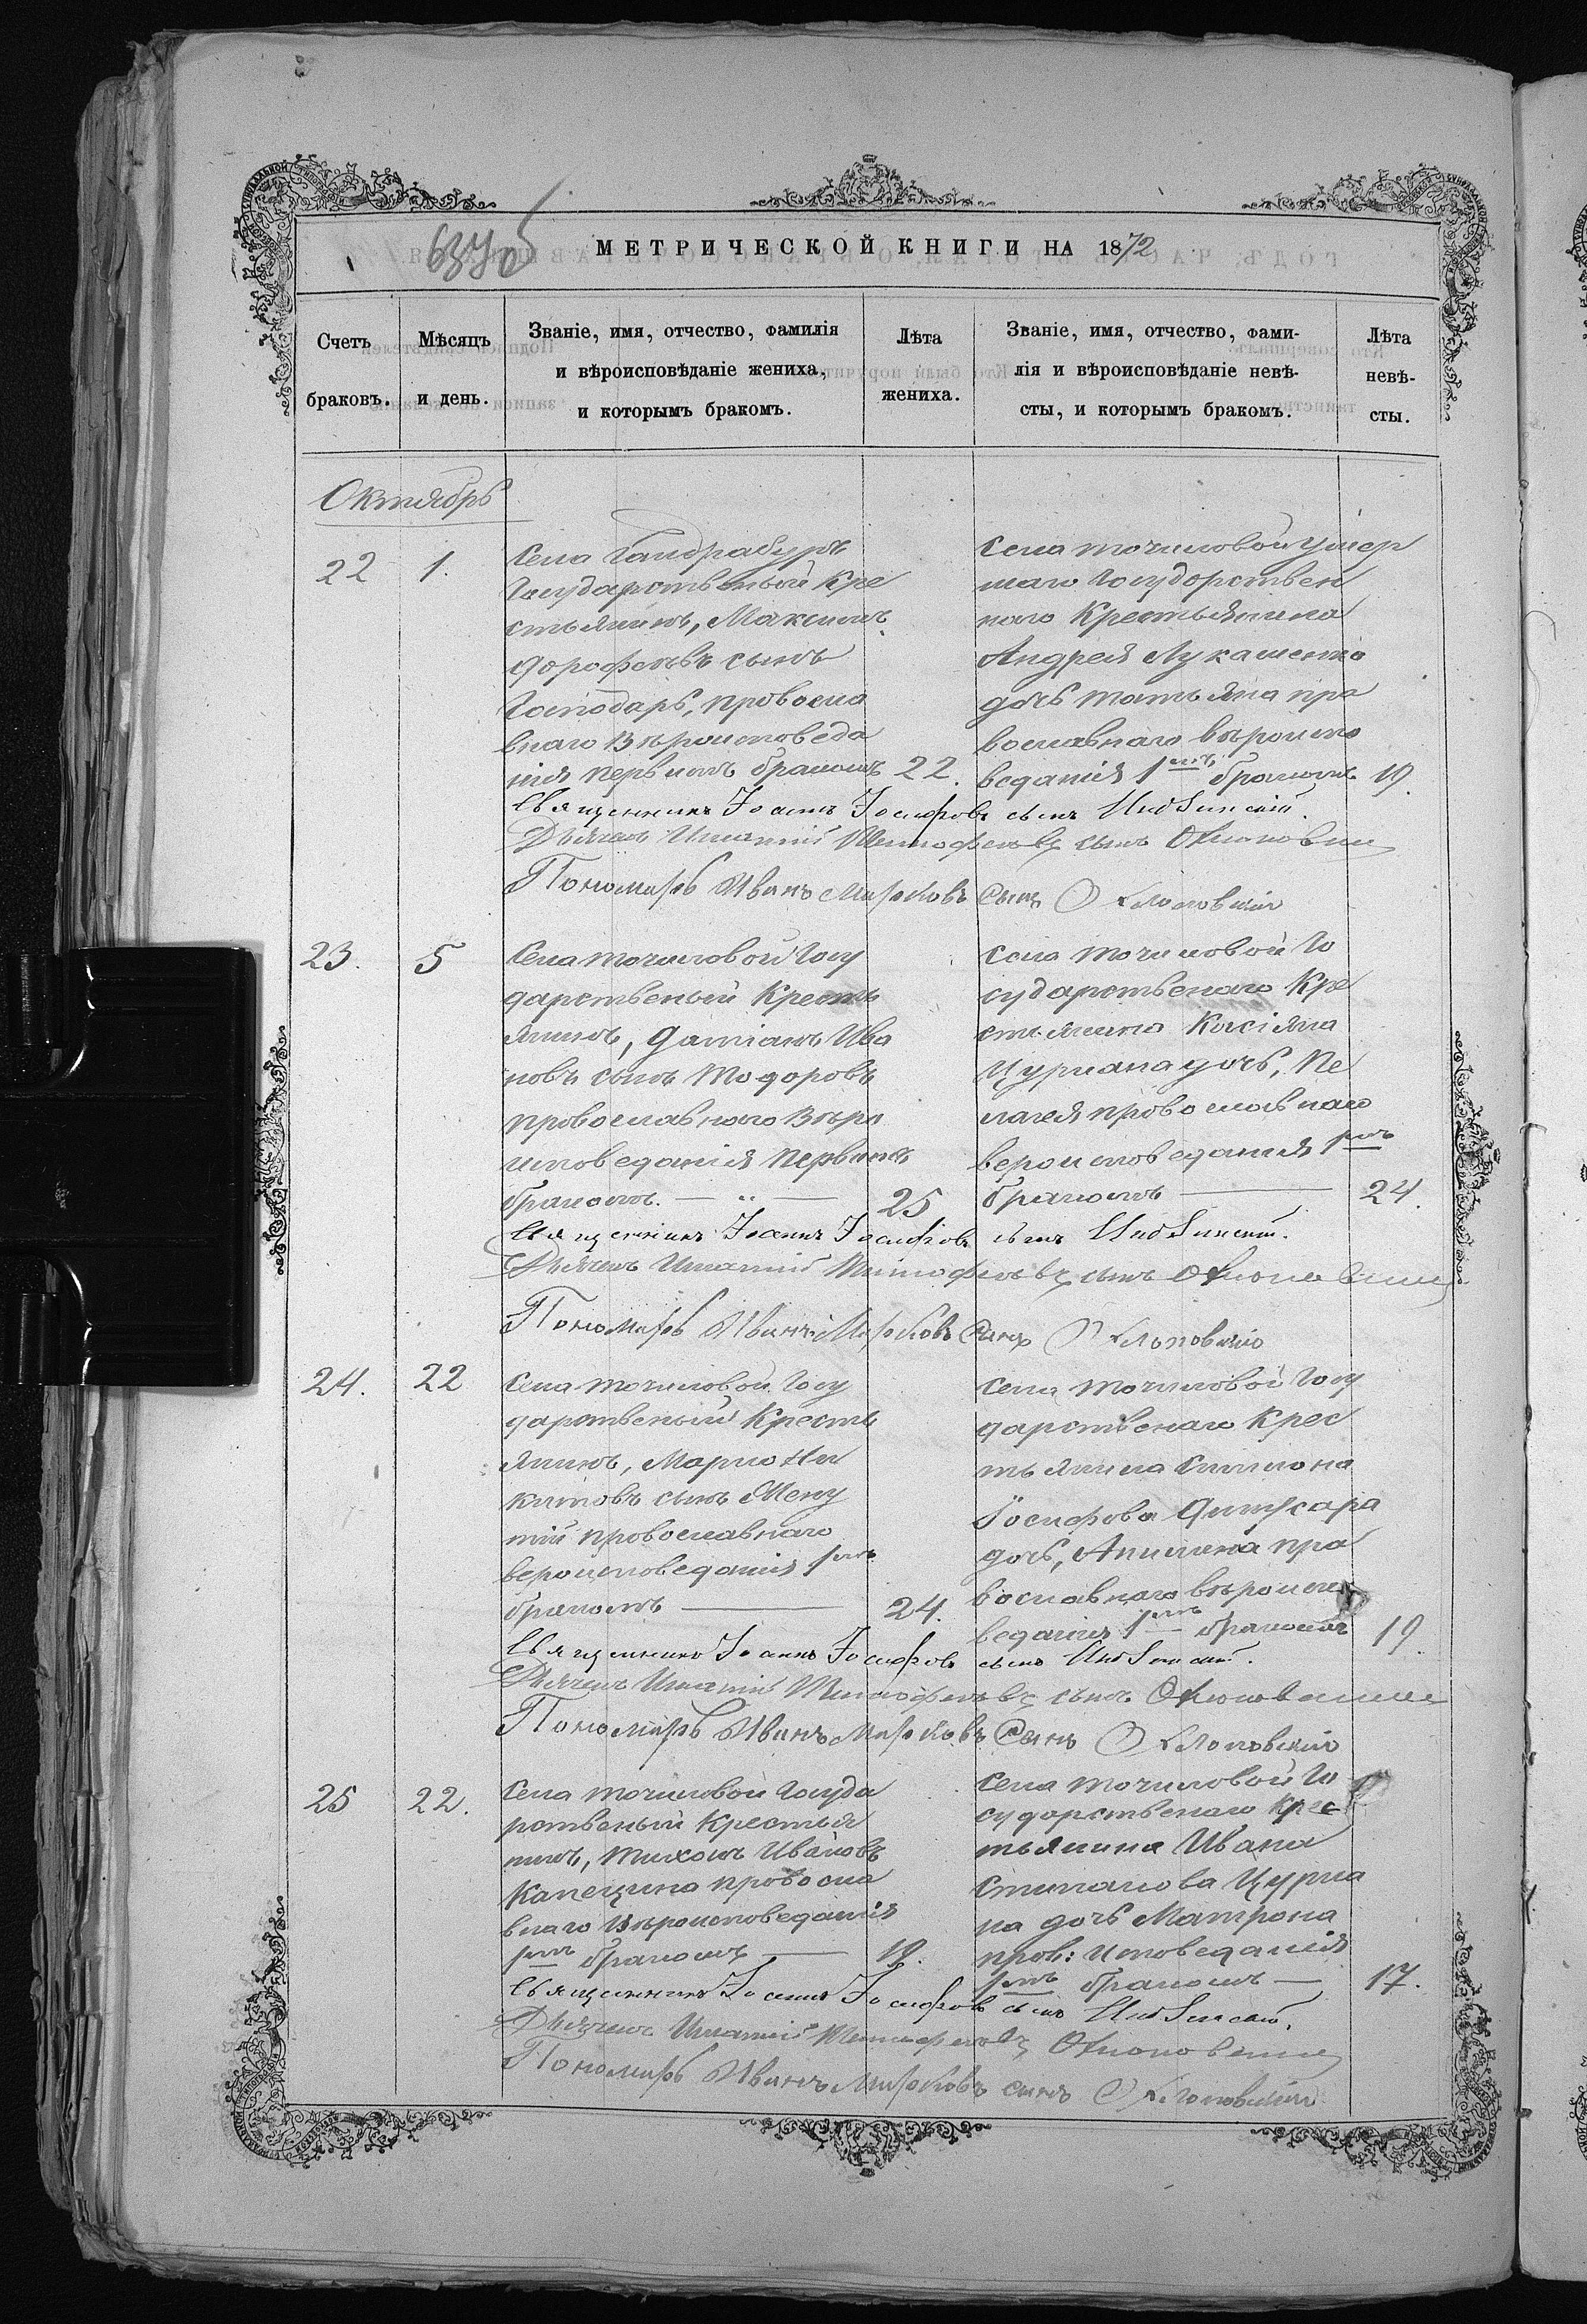 637об
МЕТРИЧЕСКОЙ КНИГИ НА 1872
Счетъ браковъ.
Мѣсяцъ и день.
Званіе, имя, отчество, фамилія
и вѣроисповѣданіе жениха,
и которымъ бракомъ.
Лѣта жениха.
Званіе, имя, отчество, фами-
лія и вѣроисповѣданіе невѣ-
сты, и которымъ бракомъ.
Лѣта невѣ-
сты.
Октябрь
22 1.
Села Гандрабуръ
Государственый Кре
стьянинъ, Максимъ
Дорофеевъ сынъ
Господарь, провосла
внаго Вѣроисповеда
нія первымъ бракомъ 22.
Села Точиловой умер
шаго Государствен
наго Крестьянина
Андрея Лукашенка
дочь Татьяна пра
вославнаго вѣроиспо
веданія 1мъ бракомъ 19.
Священникъ Іоаннъ Іосифовъ сынъ
Дьячекъ Игнатій Тимофеевъ сынъ
Пономарь Иванъ Марковъ Сынъ
23. 5
Села Точиловой Госу
дарственый Кресть
янинъ, Даміанъ Ива
новъ сынъ Тодоровъ
провославнаго Вѣро
исповеданія первымъ
бракомъ. 25
Села Точиловой Го
сударственаго Кре
стьянина Касіяна
Цуркана дочь, Пе
лагея провославнаго
вероисповеданія 1мъ
бракомъ 24.
Священникъ Іоаннъ Іосифовъ сынъ
Дьячекъ Игнатій Тимофеевъ сынъ
Пономарь Иванъ Марковъ Сынъ
24. 22
Села Точиловой Госу
дарственый Кресть
янинъ, Марко Ни
китовъ сынъ
провославнаго
вероисповеданія 1мъ
бракомъ 24.
Села Точиловой Госу
дарственаго Крес
тьянина Симиона
Іосифова
дочь, Акилина пра
вославнаго вѣроиспо
веданія 1мъ бракомъ 19.
Священникъ Іоаннъ Іосифовъ сынъ
Дьячекъ Игнатій Тимофеевъ сынъ
Пономарь Иванъ Марковъ Сынъ
25 22.
Села Точиловой Госуда
рственый Крестья
нинъ, Тихонъ Ивановъ
провосла
внаго Вѣроисповеданія
1мъ бракомъ 19.
Села Точиловой Го
сударственаго Крес
тьянина Ивана
Стипанова Цурка
на дочь Матрона
пров: исповеданія
1мъ бракомъ 17.
Священникъ Іоаннъ Іосифовъ сынъ
Дьячекъ Игнатій Тимофеевъ
Пономарь Иванъ Марковъ сынъ